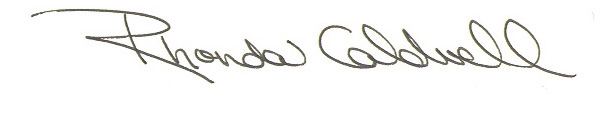 Rhonda Caldwell